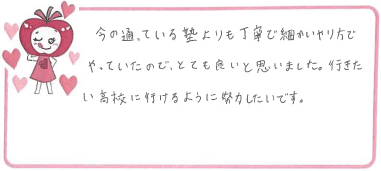 今の通っている塾よりも丁寧で細かいやり方で
やっていたので、とても良いと思いました。行きた
い高校に行けるように努力したいです。